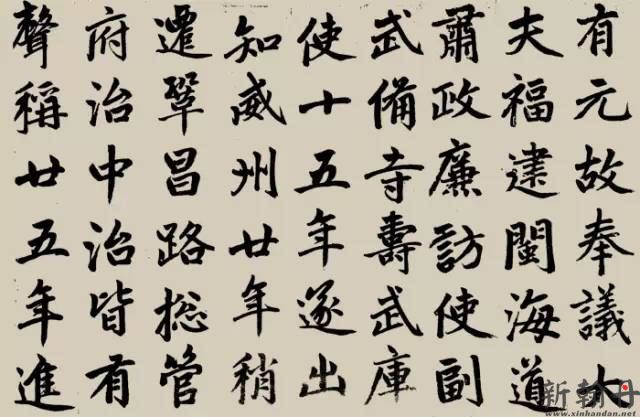 有元故奉議大
夫福建閩海道
肅政廉訪使副
武備寺壽武庫
使十五年遂出
知威州廿年稍
遷鞏昌路捴管
府治中治皆有
聲稱廿五年進
新翰丹
www.xinhandan.net